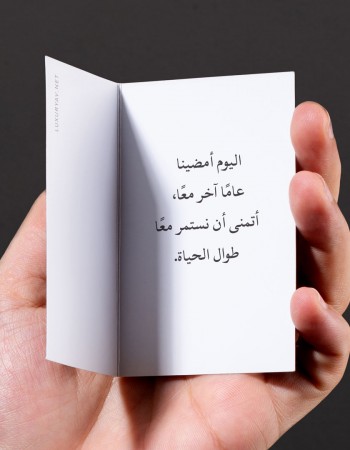 اليوم أمضينا
عامًا آخر معًا،
أتمنى أن نستمر معًا
طوال الحياة.
LUXURYAY.NET